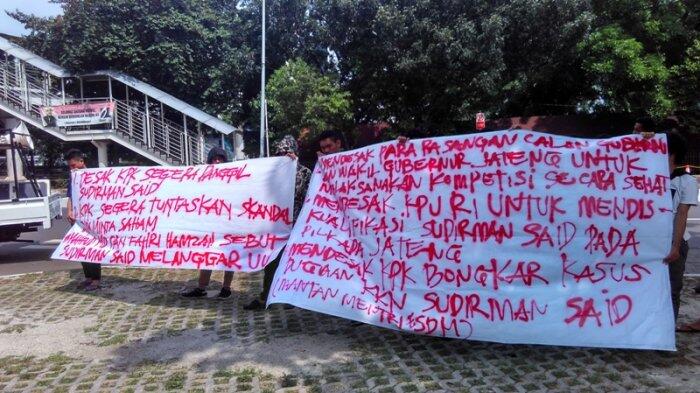 DESAK KPK SEGERA PANGGIL
SUDIRMAN SAID
KPK SEGERA TUNTASKAN SKANDAL
MINTA SAHAM
MAHFUD MD DAN FAHRI HAMZAH SEBUT
SUDIRMAN SAID MELANGGAR UU
MENDESAK PARA PASANGAN CALON GUBERNUR
DAN WAKIL GUBERNUR JATENG UNTUK
KOMPETISI SECARA SEHAT
MENDESAK KPU RI UNTUK MENDIS-
KUALIFIKASI SUDIRMAN SAID PADA
PILKADA JATENG
MENDESAK KPK BONGKAR KASUS
SUDIRMAN SAID
(MANTAN MENTRI ESDM)